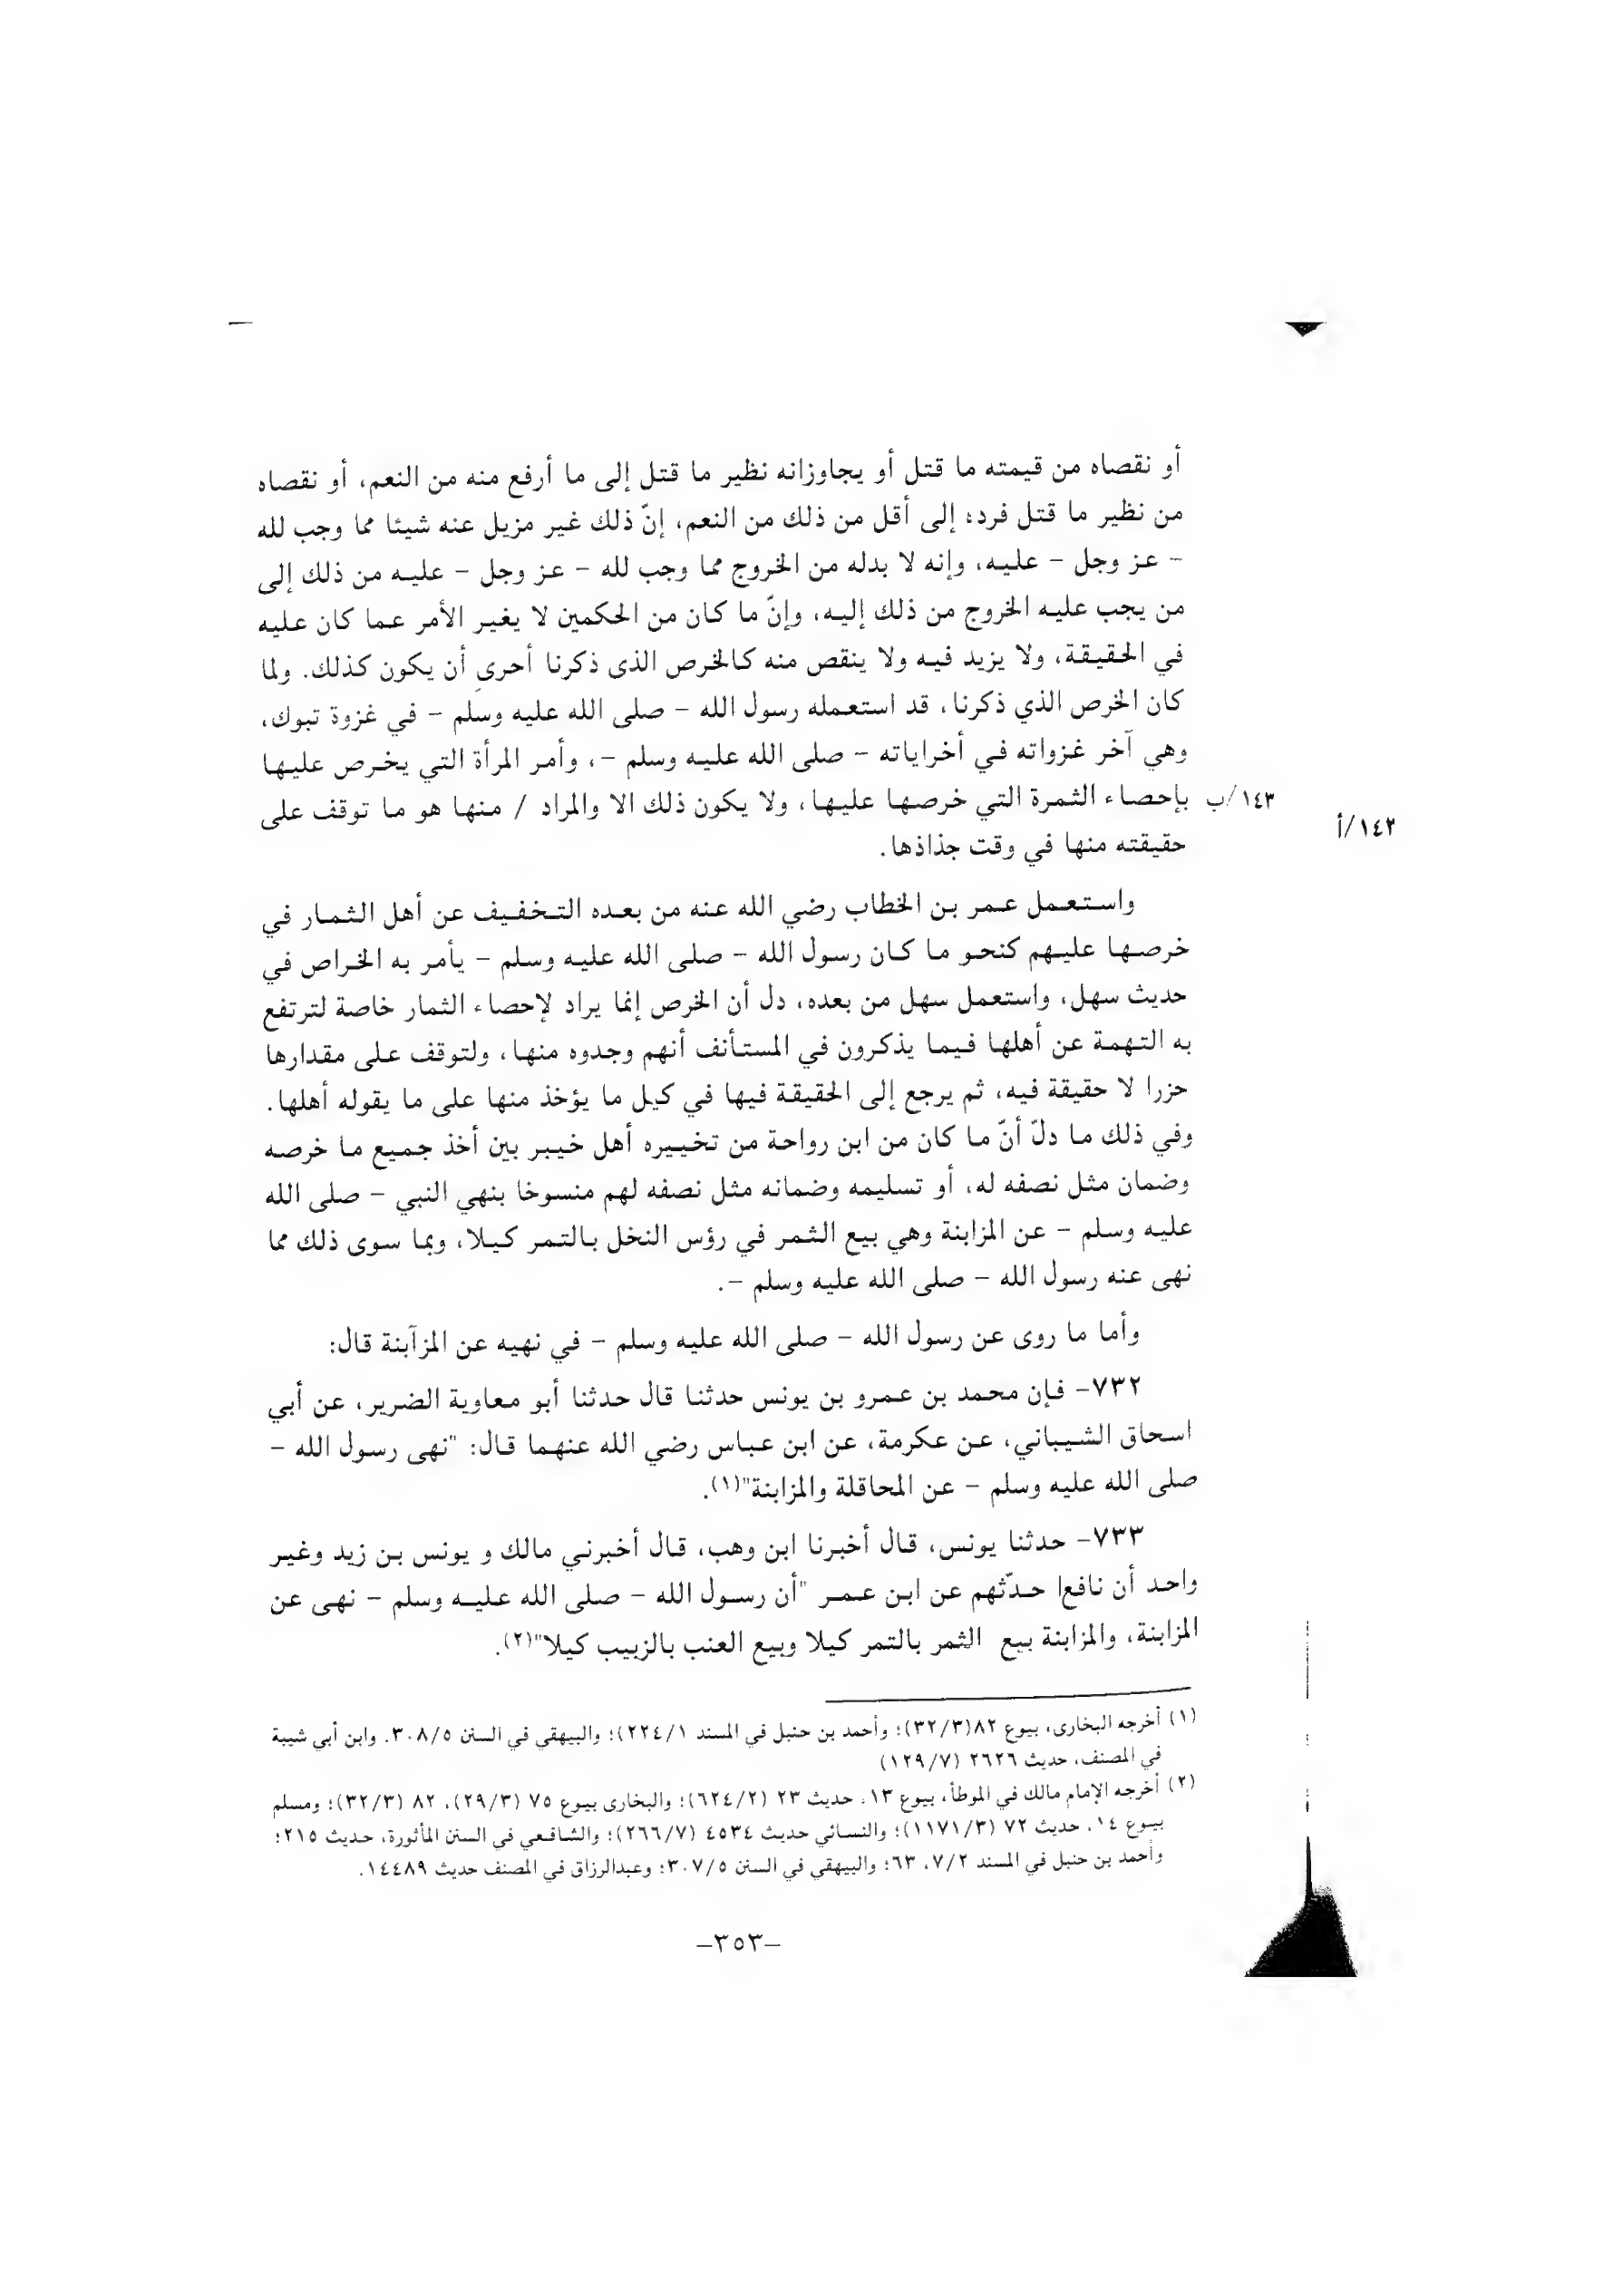 أو نقصاه من قيمته ما قتل أو يجاوزانه نظير ما قتل إلى ما أرفع منه من النعم، أو نقصاه
من نظير ما قتل فرده إلى أقل من ذلك من النعم، إنّ ذلك غير مزيل عنه شيئا مما وجب لله
- عز وجل - عليه، وإنه لا بدله من الخروج مما وجب لله - عز وجل - عليه من ذلك إلى
من يجب عليه الخروج من ذلك إليه، وإنّ ما كان من الحكمين لا يغير الأمر عما كان عليه
في الحقيقة، ولا يزيد فيه ولا ينقص منه كالخرص الذى ذكرنا أحرى أن يكون كذلك. ولما
كان الخرص الذي ذكرنا، قد استعمله رسول الله - صلى الله عليه وسلم - في غزوة تبوك،
وهي آخر غزواته في أخراياته - صلى الله عليه وسلم -، وأمر المرأة التي يخرص عليها
١٤٣/ب بإحصاء الثمرة التي خرصها عليها، ولا يكون ذلك الا والمراد / منها هو ما توقف على
١٤٢/أ
حقيقته منها في وقت جذاذها.
واستعمل عمر بن الخطاب رضي الله عنه من بعده التخفيف عن أهل الثمار في
خرصها عليهم كنحو ما كان رسول الله - صلى الله عليه وسلم - يأمر به الخراص في
حديث سهل، واستعمل سهل من بعده، دل أن الخرص إنما يراد لإحصاء الثمار خاصة لترتفع
به التهمة عن أهلها فيما يذكرون في المستأنف أنهم وجدوه منها، ولتوقف على مقدارها
حزرا لا حقيقة فيه، ثم يرجع إلى الحقيقة فيها في كيل ما يؤخذ منها على ما يقوله أهلها.
وفي ذلك ما دلّ أنّ ما كان من ابن رواحة من تخييره أهل خيبر بين أخذ جميع ما خرصه
وضمان مثل نصفه له، أو تسليمه وضمانه مثل نصفه لهم منسوخا بنهي النبي - صلى الله
عليه وسلم - عن المزابنة وهي بيع الثمر في رؤس النخل بالتمر كيلا، وبما سوى ذلك مما
نهى عنه رسول الله - صلى الله عليه وسلم -.
وأما ما روى عن رسول الله - صلى الله عليه وسلم - في نهيه عن المزآبنة قال:
٧٣٢- فإن محمد بن عمرو بن يونس حدثنا قال حدثنا أبو معاوية الضرير، عن أبي
اسحاق الشيباني، عن عكرمة، عن ابن عباس رضي الله عنهما قال: "نهى رسول الله -
صلى الله عليه وسلم - عن المحاقلة والمزابنة"(١).
٧٣٣- حدثنا يونس، قال أخبرنا ابن وهب، قال أخبرني مالك و يونس بن زيد وغير
واحد أن نافعا حدّثهم عن ابن عمر "أن رسول الله - صلى الله عليه وسلم - نهى عن
المزابنة، والمزابنة بيع الثمر بالتمر كيلا وبيع العنب بالزبيب كيلا"(٢).
(١) أخرجه البخارى، بيوع ٨٢(٣٢/٣)؛ وأحمد بن حنبل في المسند ٢٢٤/١)؛ والبيهقي في السنن ٣٠٨/٥. وابن أبي شيبة
في المصنف، حديث ٢٦٢٦ (١٢٩/٧)
(٢) أخرجه الإمام مالك في الموطأ، بيوع ١٣، حديث ٢٣ (٦٢٤/٢)؛ والبخارى بيوع ٧٥ (٢٩/٣)، ٨٢ (٣٢/٣)؛ ومسلم
بيوع ١٤، حديث ٧٢ (١١٧١/٣)؛ والنسائي حديث ٤٥٣٤ (٢٦٦/٧)؛ والشافعي في السنن المأثورة، حديث ٢١٥؛
وأحمد بن حنبل في المسند ٧/٢، ٦٣؛ والبيهقي في السنن ٣٠٧/٥؛ وعبدالرزاق في المصنف حديث ١٤٤٨٩.
-٣٥٣-